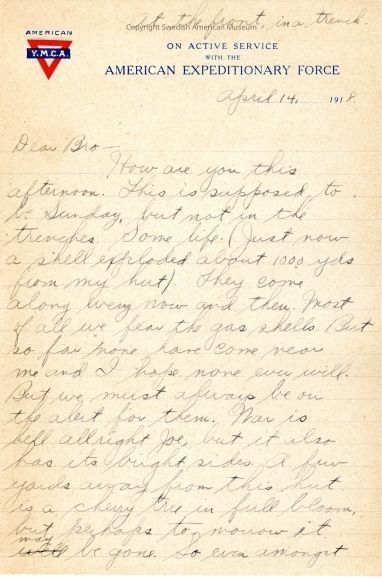 At the front, in a trench.
Copyright Swedish American Museum
AMERICAN
Y.M.C.A.
ON ACTIVE SERVICE
WITH THE
AMERICAN EXPEDITIONARY FORCE
April 14, 1918.
Dear Bro—
How are you this
afternoon. This is supposed to
be Sunday, but not in the
trenches. Some life. (Just now
a shell exploded about 1000 yds
from my hut). They come
along every now and then. Most
of all we fear the gas shells. But
so far none have come near
me and I hope none ever will.
But we must always be on
the alert for them. War is
hell allright Joe, but it also
has its bright sides. A few
yards away from this hut
is a cherry tree in full bloom,
but perhaps to morrow it
may
be gone. So even amongst